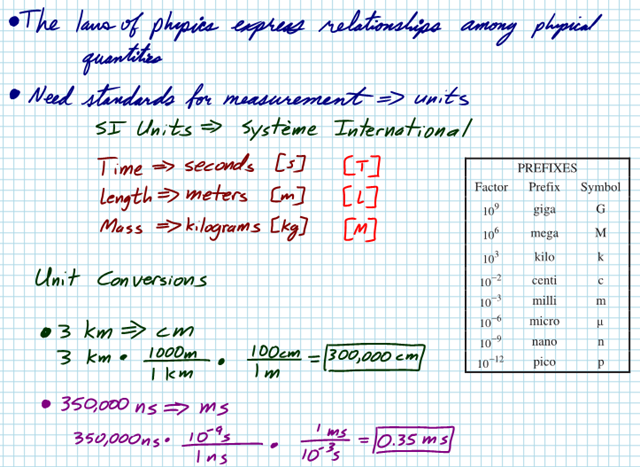 • The laws of physics express relationships among physical
quantities
• Need standards for measurement => units
SI Units => Système International
Time => seconds [s] [T]
Length => meters [m] [L]
Mass => kilograms [kg] [M]
PREFIXES
Factor Prefix Symbol
10⁹ giga G
10⁶ mega M
10³ kilo k
10⁻² centi c
10⁻³ milli m
10⁻⁶ micro μ
10⁻⁹ nano n
10⁻¹² pico p
Unit Conversions
• 3 km => cm
3 km · 1000m / 1 km · 100cm / 1m = 300,000 cm
• 350,000 ns => ms
350,000 ns · 10⁻⁹s / 1 ns · 1 ms / 10⁻³s = 0.35 ms